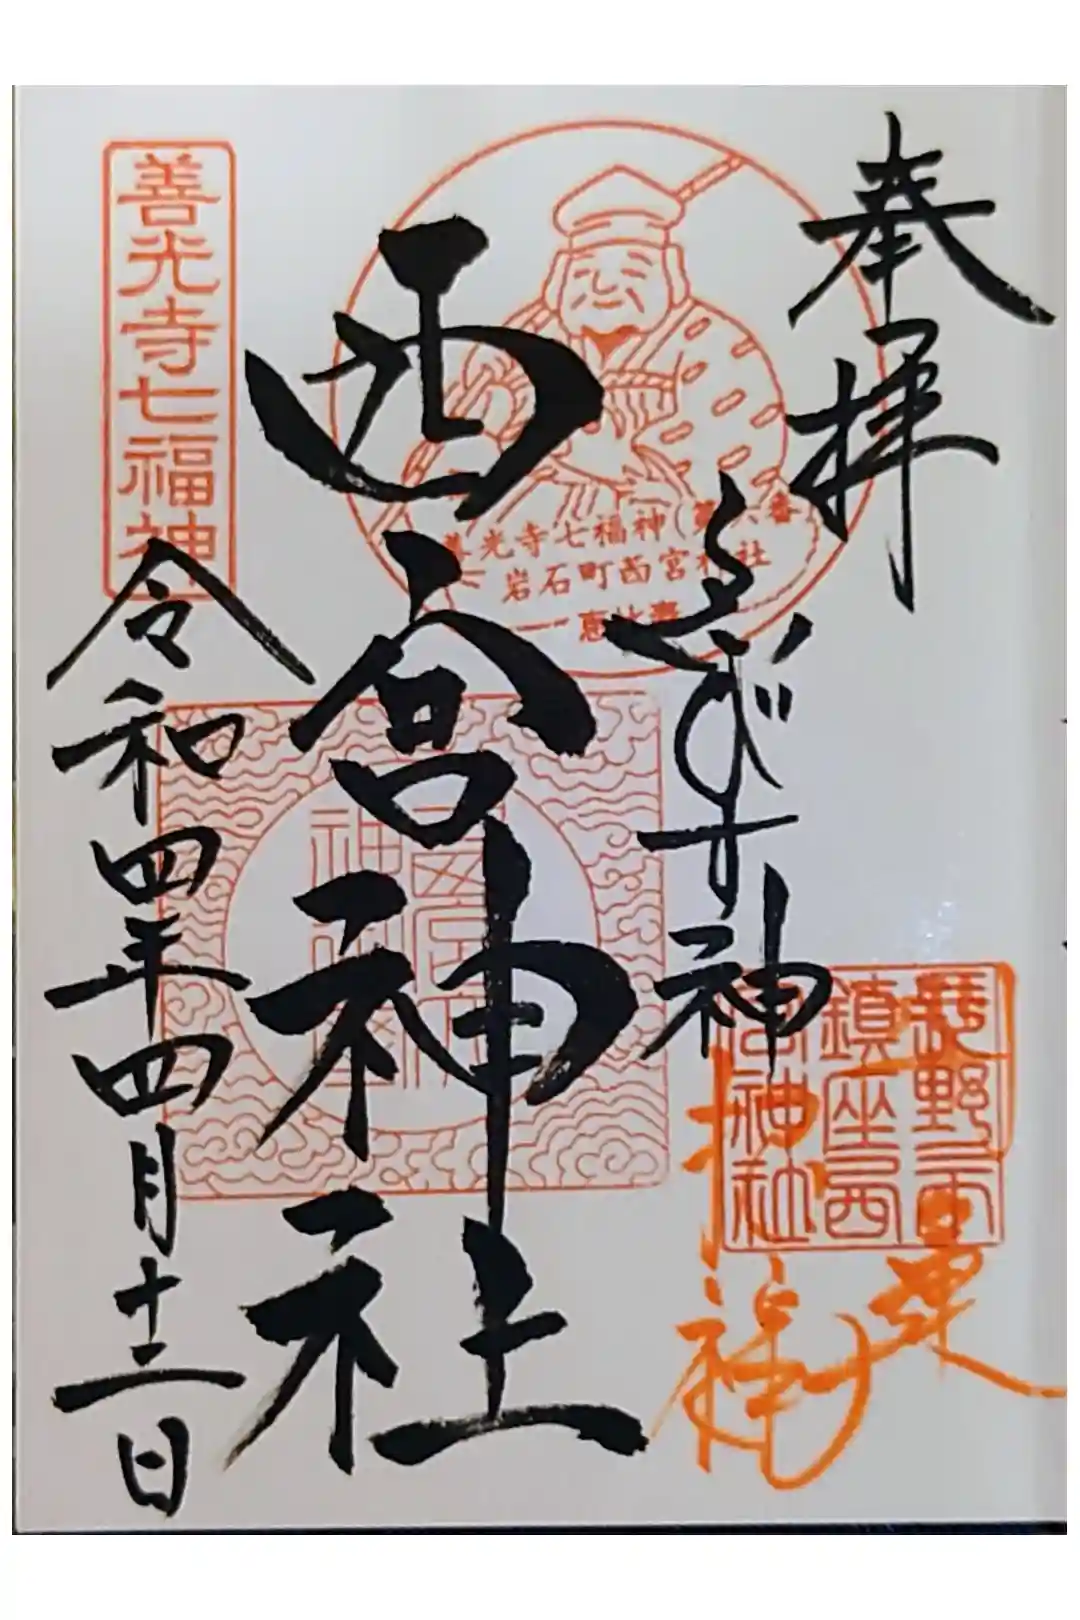 奉拝
ゑびす神
西宮神社
令和四年四月十二日
善光寺七福神
善光寺七福神(第六番)
岩石町西宮神社
恵比寿
長野市
鎮座西
宮神社
開運
招福